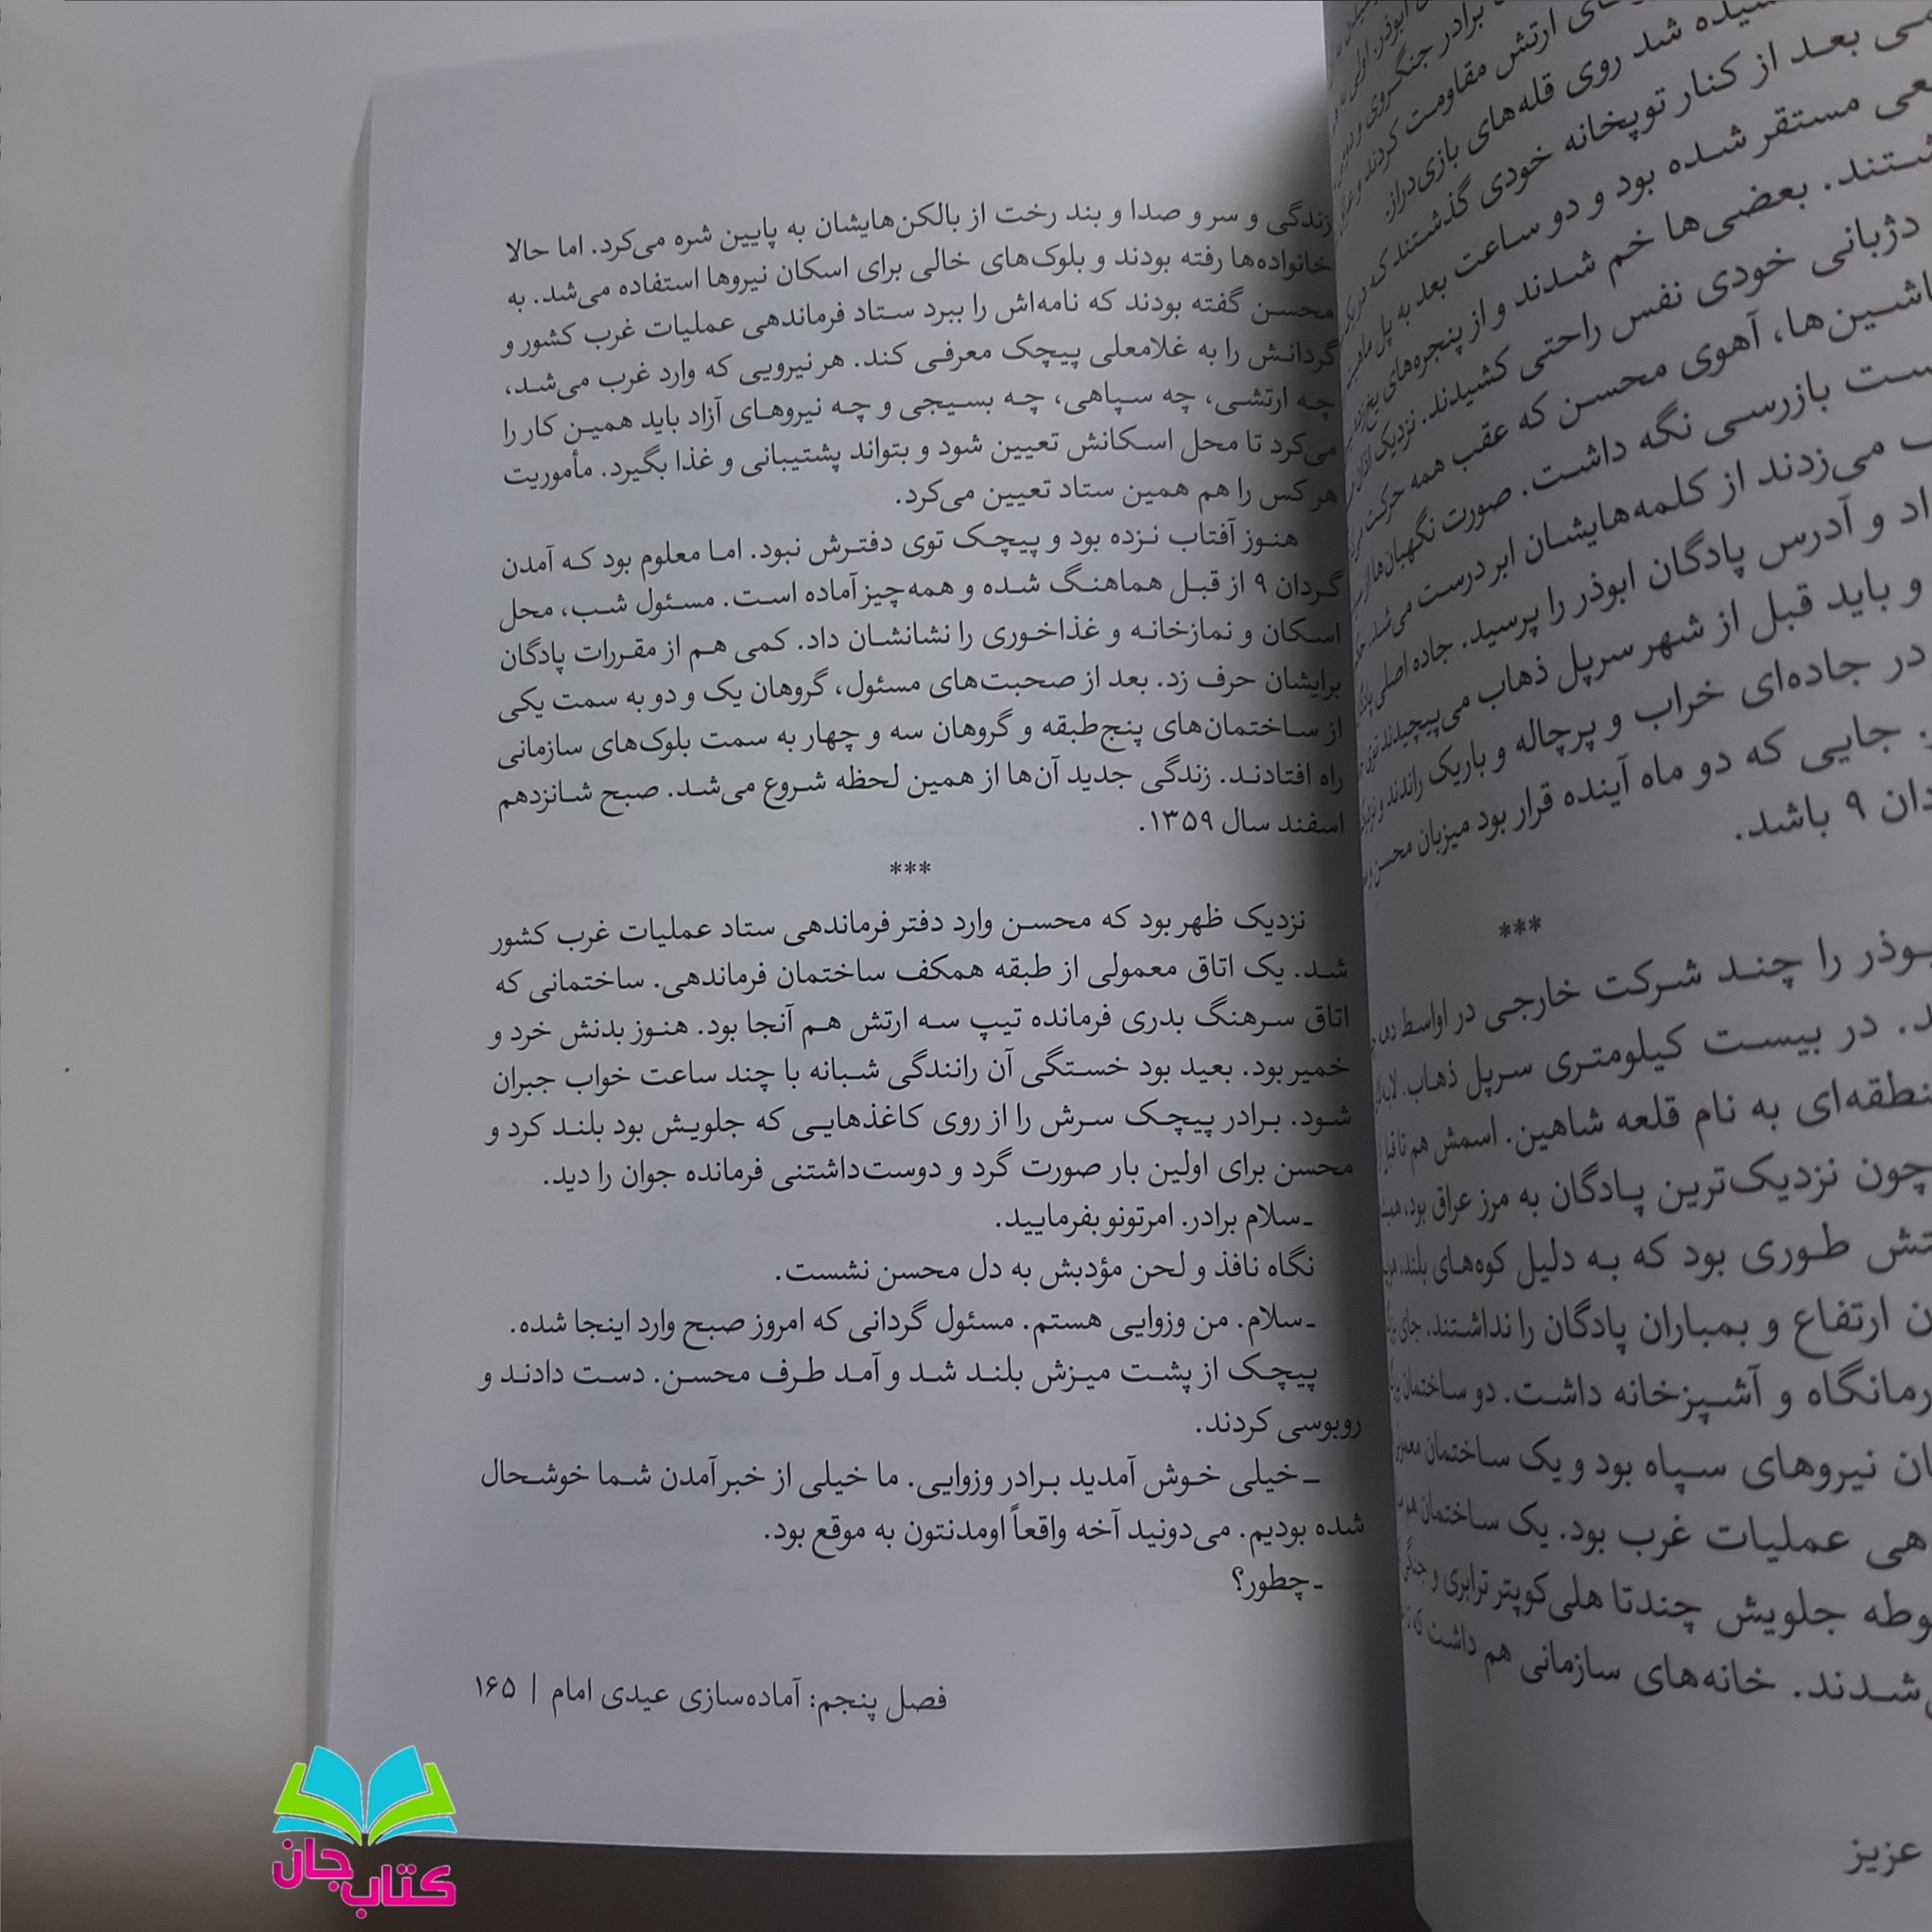 سیده شد روی قله‌های بازی‌دراز.
می بعد از کنار توپخانه خودی گذشتند که در یک
عی مستقر شده بود و دو ساعت بعد به پل
شتند. بعضی‌ها خم شدند و از پنجره‌های
دژبانی خودی نفس راحتی کشیدند. نزدیک
اشین‌ها، آهوی محسن که عقب همه حرکت
ست بازرسی نگه داشت. صورت نگهبان‌ها از
ف می‌زدند از کلمه‌هایشان ابر درست می‌شد.
اد و آدرس پادگان ابوذر را پرسید. جاده اصلی
و باید قبل از شهر سرپل ذهاب می‌پیچیدند توی
در جاده‌ای خراب و پرچاله و باریک راندند و
جایی که دو ماه آینده قرار بود میزبان محسن و
دان ۹ باشد.
***
بوذر را چند شرکت خارجی در اواسط
د. در بیست کیلومتری سرپل ذهاب.
نطقه‌ای به نام قلعه شاهین. اسمش هم تا قبل
چون نزدیک‌ترین پادگان به مرز عراق بود،
تش طوری بود که به دلیل کوه‌های بلند،
ن ارتفاع و بمباران پادگان را نداشتند. جای
رمانگاه و آشپزخانه داشت. دو ساختمان
ان نیروهای سپاه بود و یک ساختمان
هی عملیات غرب بود. یک ساختمان هم
وطه جلویش چندتا هلی‌کوپتر ترابری و جنگی
شدند. خانه‌های سازمانی هم داشت که
عزیز
زندگی و سر و صدا و بند رخت از بالکن‌هایشان به پایین شره می‌کرد. اما حالا
خانواده‌ها رفته بودند و بلوک‌های خالی برای اسکان نیروها استفاده می‌شد. به
محسن گفته بودند که نامه‌اش را ببرد ستاد فرماندهی عملیات غرب کشور و
گردانش را به غلامعلی پیچک معرفی کند. هر نیرویی که وارد غرب می‌شد،
چه ارتشی، چه سپاهی، چه بسیجی و چه نیروهای آزاد باید همین کار را
می‌کرد تا محل اسکانش تعیین شود و بتواند پشتیبانی و غذا بگیرد. مأموریت
هر کس را هم همین ستاد تعیین می‌کرد.
هنوز آفتاب نزده بود و پیچک توی دفترش نبود. اما معلوم بود که آمدن
گردان ۹ از قبل هماهنگ شده و همه‌چیز آماده است. مسئول شب، محل
اسکان و نمازخانه و غذاخوری را نشانشان داد. کمی هم از مقررات پادگان
برایشان حرف زد. بعد از صحبت‌های مسئول، گروهان یک و دو به سمت یکی
از ساختمان‌های پنج‌طبقه و گروهان سه و چهار به سمت بلوک‌های سازمانی
راه افتادند. زندگی جدید آن‌ها از همین لحظه شروع می‌شد. صبح شانزدهم
اسفند سال ۱۳۵۹.
***
نزدیک ظهر بود که محسن وارد دفتر فرماندهی ستاد عملیات غرب کشور
شد. یک اتاق معمولی از طبقه همکف ساختمان فرماندهی. ساختمانی که
اتاق سرهنگ بدری فرمانده تیپ سه ارتش هم آنجا بود. هنوز بدنش خرد و
خمیر بود. بعید بود خستگی آن رانندگی شبانه با چند ساعت خواب جبران
شود. برادر پیچک سرش را از روی کاغذهایی که جلویش بود بلند کرد و
محسن برای اولین بار صورت گرد و دوست‌داشتنی فرمانده جوان را دید.
ـ سلام برادر. امرتونو بفرمایید.
نگاه نافذ و لحن مؤدبش به دل محسن نشست.
ـ سلام. من وزوایی هستم. مسئول گردانی که امروز صبح وارد اینجا شده.
پیچک از پشت میزش بلند شد و آمد طرف محسن. دست دادند و
روبوسی کردند.
ـ خیلی خوش آمدید برادر وزوایی. ما خیلی از خبر آمدن شما خوشحال
شده بودیم. می‌دونید آخه واقعاً اومدنتون به موقع بود.
ـ چطور؟
فصل پنجم: آماده‌سازی عیدی امام | ۱۶۵
کتاب جان